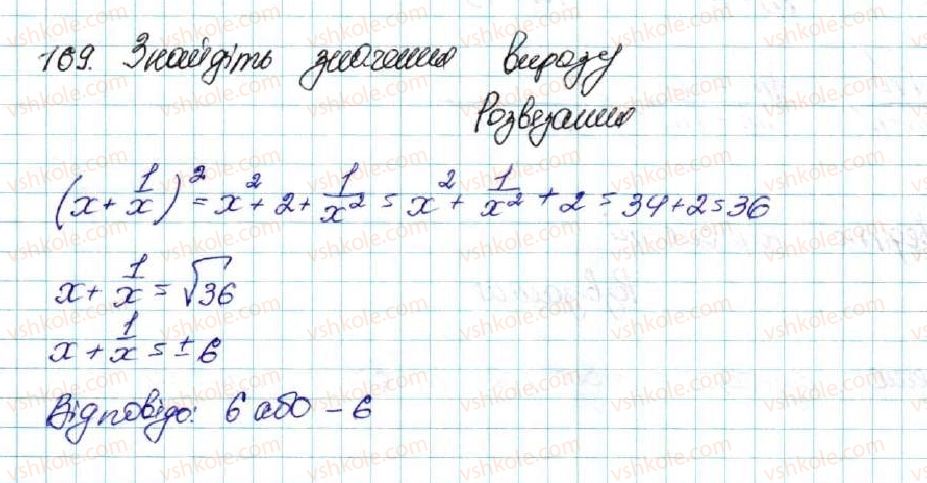 169. Знайдіть значення виразу
Розвезання
(x + 1/x)² = x² + 2 + 1/x² = x² + 1/x² + 2 = 34 + 2 = 36
x + 1/x = √36
x + 1/x = ± 6
Відповідь: 6 або – 6
vshkole.com